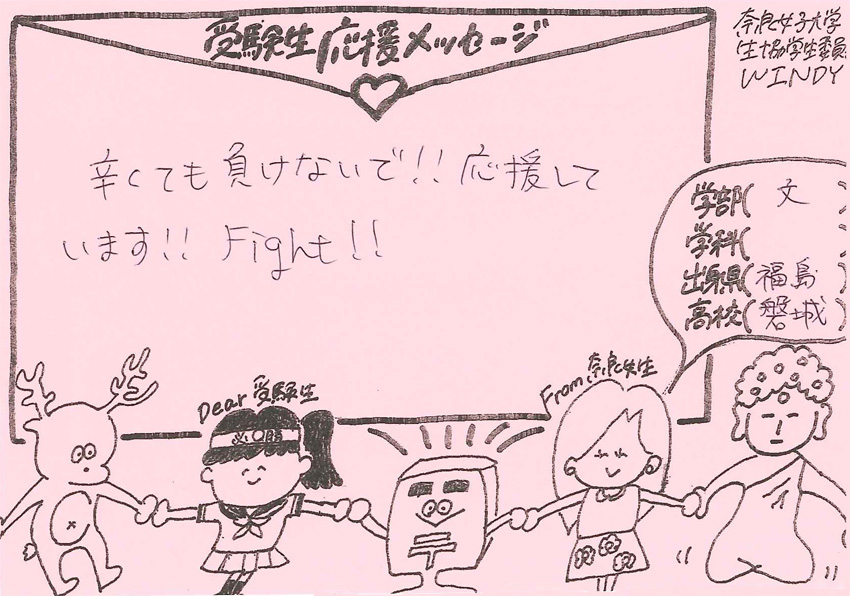 受験生応援メッセージ
奈良女子大学
生協学生委員
WINDY
辛くても負けないで!! 応援して
います!! Fight!!
学部( 文 )
学科( )
出身県( 福島 )
高校( 磐城 )
Dear 受験生
From 奈良女生
必〇勝
〒